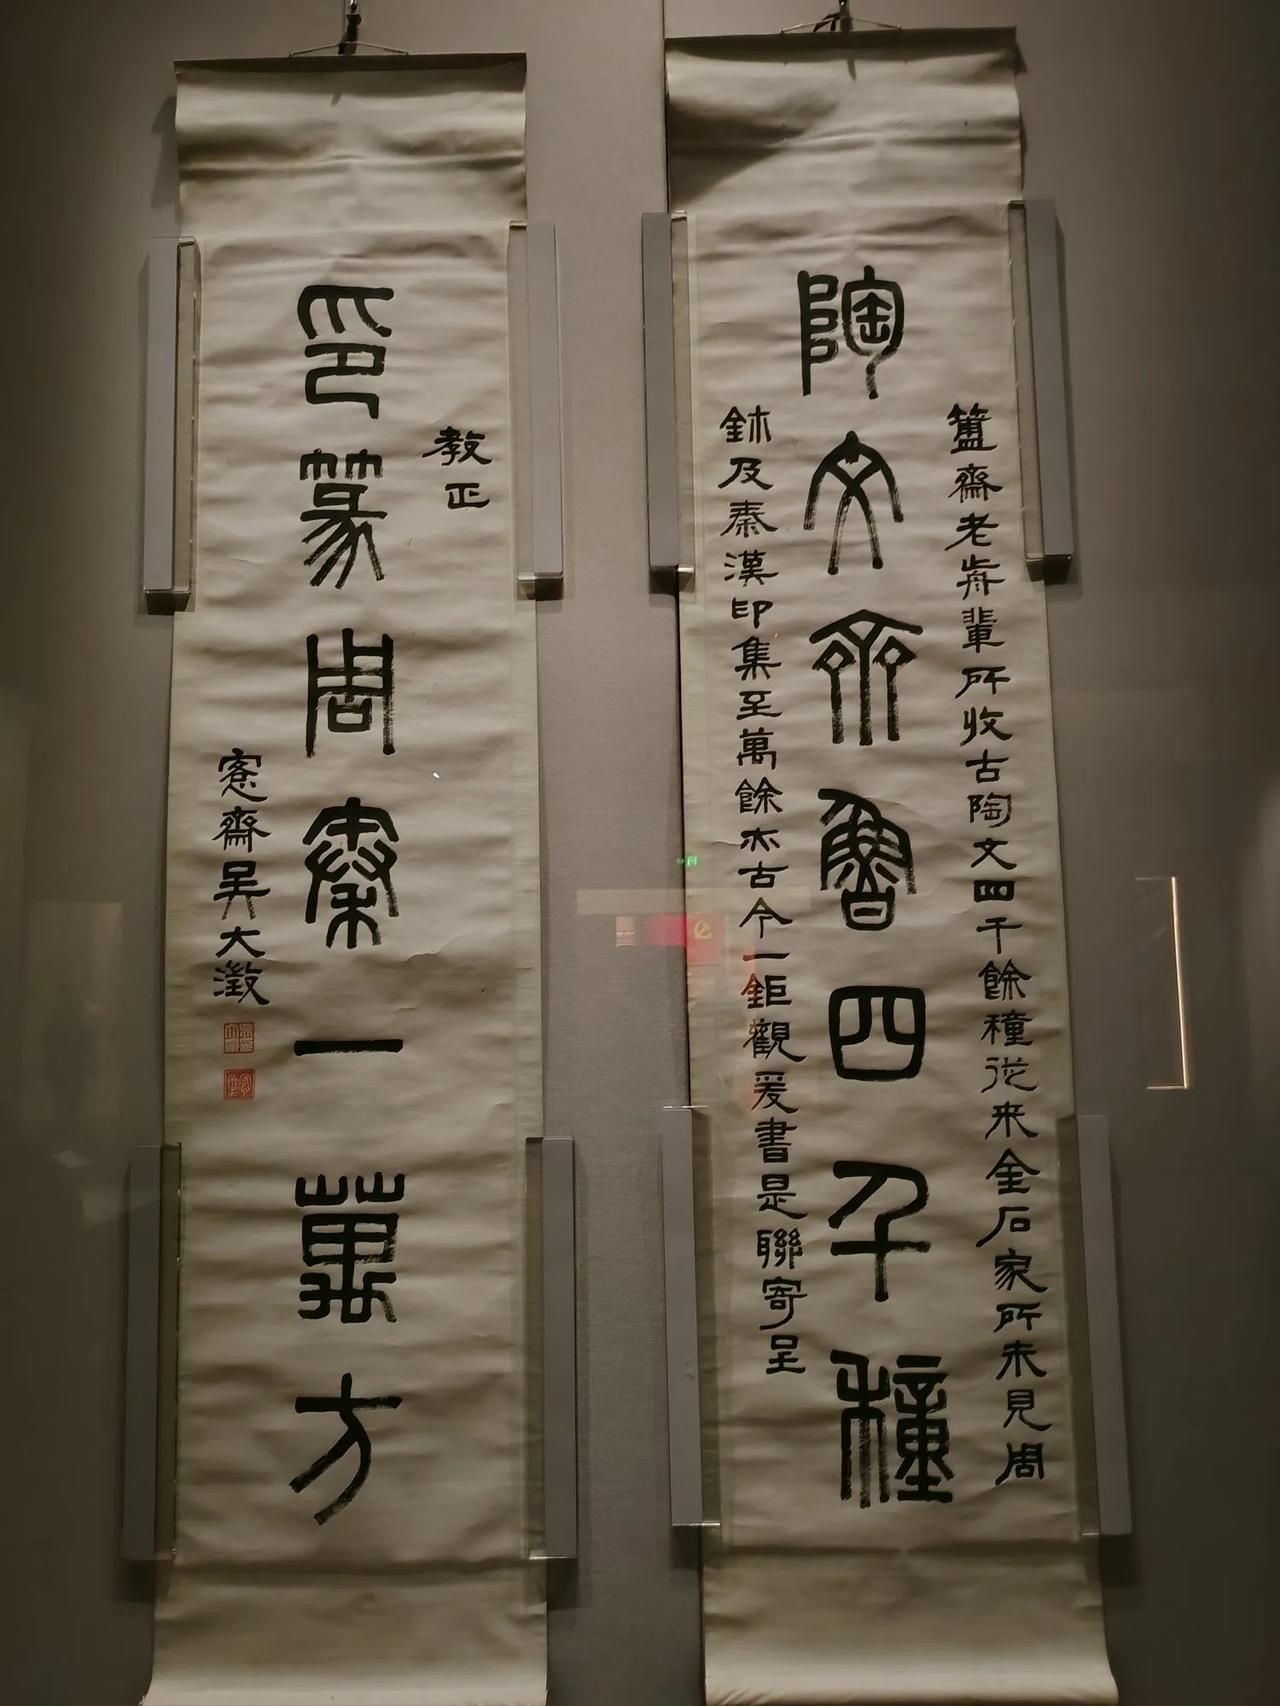 陶文齊魯四千種
簠齋老前輩所收古陶文四千餘種從来金石家所未見周
鉨及秦漢印集至萬餘亦古今一鉅觀爰書是聯寄呈
教正
印篆周秦一萬方
愙齋吳大澂